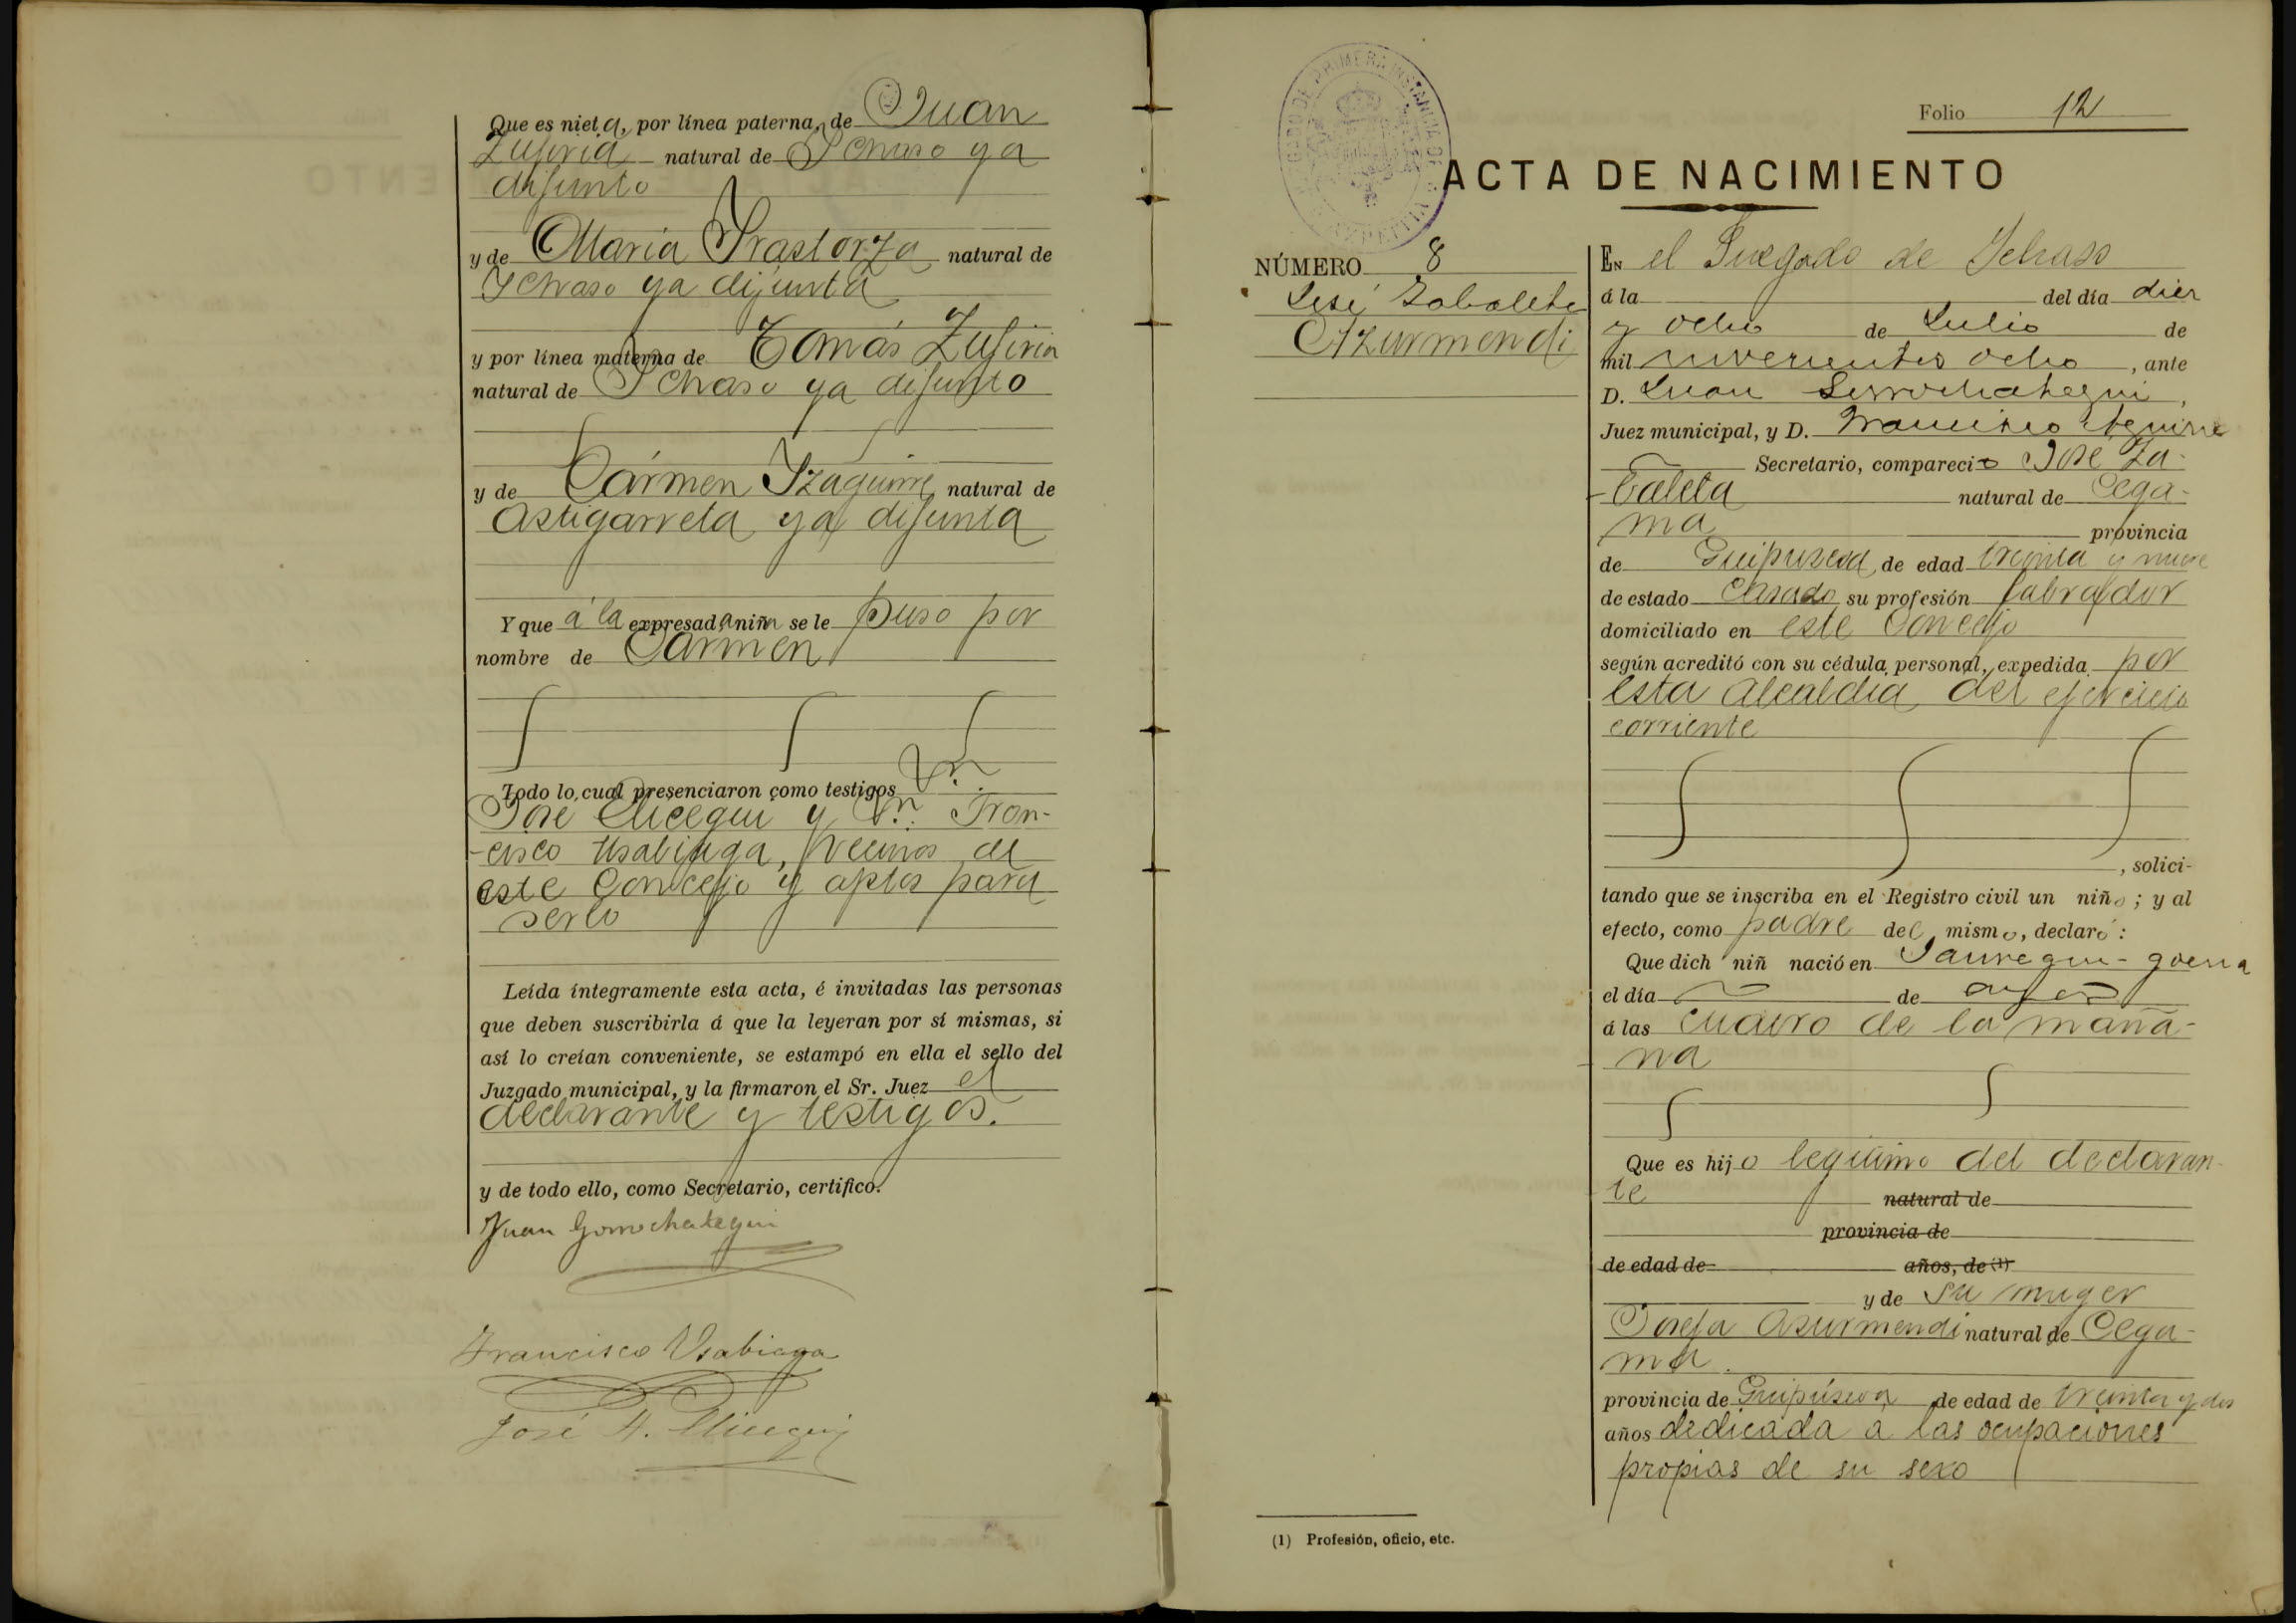 Que es nieta, por línea paterna, de Juan
Zufiria natural de Ichaso ya
difunto
y de Maria Irastorza natural de
Ichaso ya difunta
y por línea materna de Tomás Zufiria
natural de Ichaso ya difunto
y de Cármen Izaguirre natural de
Astigarreta ya difunta
Y que á la expresada niña se le puso por
nombre de Carmen
Todo lo cual presenciaron como testigos Dn.
José Elicegui y Dn. Fran-
-cisco Usabiaga, vecinos de
este Concejo y aptos para
serlo
Leída íntegramente esta acta, é invitadas las personas
que deben suscribirla á que la leyeran por sí mismas, si
así lo creían conveniente, se estampó en ella el sello del
Juzgado municipal, y la firmaron el Sr. Juez el
declarante y testigos.
y de todo ello, como Secretario, certifico.
Juan Gorrochategui
Francisco Usabiaga
José A. Elicegui
Folio 12
ACTA DE NACIMIENTO
NÚMERO 8
José Zabaleta
Azurmendi
EN el Juzgado de Ichaso
á la del día diez
y ocho de Julio de
mil novecientos ocho, ante
D. Juan Gorrochategui,
Juez municipal, y D. Francisco Aguirre
Secretario, compareció José Za-
-baleta natural de Cega-
ma provincia
de Guipuzcoa de edad treinta y nueve
de estado Casado su profesión labrador
domiciliado en este Concejo
según acreditó con su cédula personal, expedida por
esta Alcaldia del ejercicio
corriente
, solici-
tando que se inscriba en el Registro civil un niño; y al
efecto, como padre del mismo, declaró:
Que dich niñ nació en Jauregui-goena
el día de ayer
á las cuatro de la maña-
-na
Que es hijo legitimo del declaran-
te natural de
provincia de
de edad de años, de (1)
y de su muger
Josefa Asurmendi natural de Cega-
ma.
provincia de Guipúscoa de edad de treinta y dos
años dedicada a las ocupaciones
propias de su sexo
(1) Profesión, oficio, etc.